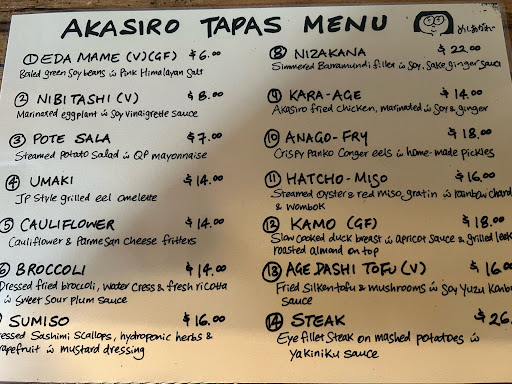 AKASIRO TAPAS MENU
① EDA MAME (V)(GF) $6.00
Boiled green soy beans w Pink Himalayan Salt
② NIBITASHI (V) $8.00
Marinated eggplant w soy vinaigrette sauce
③ POTE SALA $7.00
Steamed potato Salad w QP mayonnaise
④ UMAKI $14.00
JP Style grilled eel omelette
⑤ CAULIFLOWER $14.00
Cauliflower & Parmesan cheese fritters
⑥ BROCCOLI $14.00
Dressed fried broccoli, water cress & fresh ricotta
w Sweet Sour plum sauce
SUMISO $16.00
Sashimi Scallops, hydroponic herbs &
w mustard dressing
⑧ NIZAKANA $22.00
Simmered Barramundi fillet w Soy, Sake, ginger sauce
⑨ KARA-AGE $14.00
Akasiro fried chicken, marinated w soy & ginger
⑩ ANAGO-FRY $18.00
Crispy Panko Conger eels w home-made pickles
⑪ HATCHO-MISO $16.00
Steamed Oyster & red miso gratin w rainbow chard
& wombok
⑫ KAMO (GF) $18.00
Slow cooked duck breast w apricot sauce & grilled leek
roasted almond on top
⑬ AGE DASHI TOFU (V) $16.00
Fried Silken tofu & mushrooms w Soy Yuzu
sauce
⑭ STEAK $26.
Eye fillet Steak on mashed potatoes w
yakiniku sauce